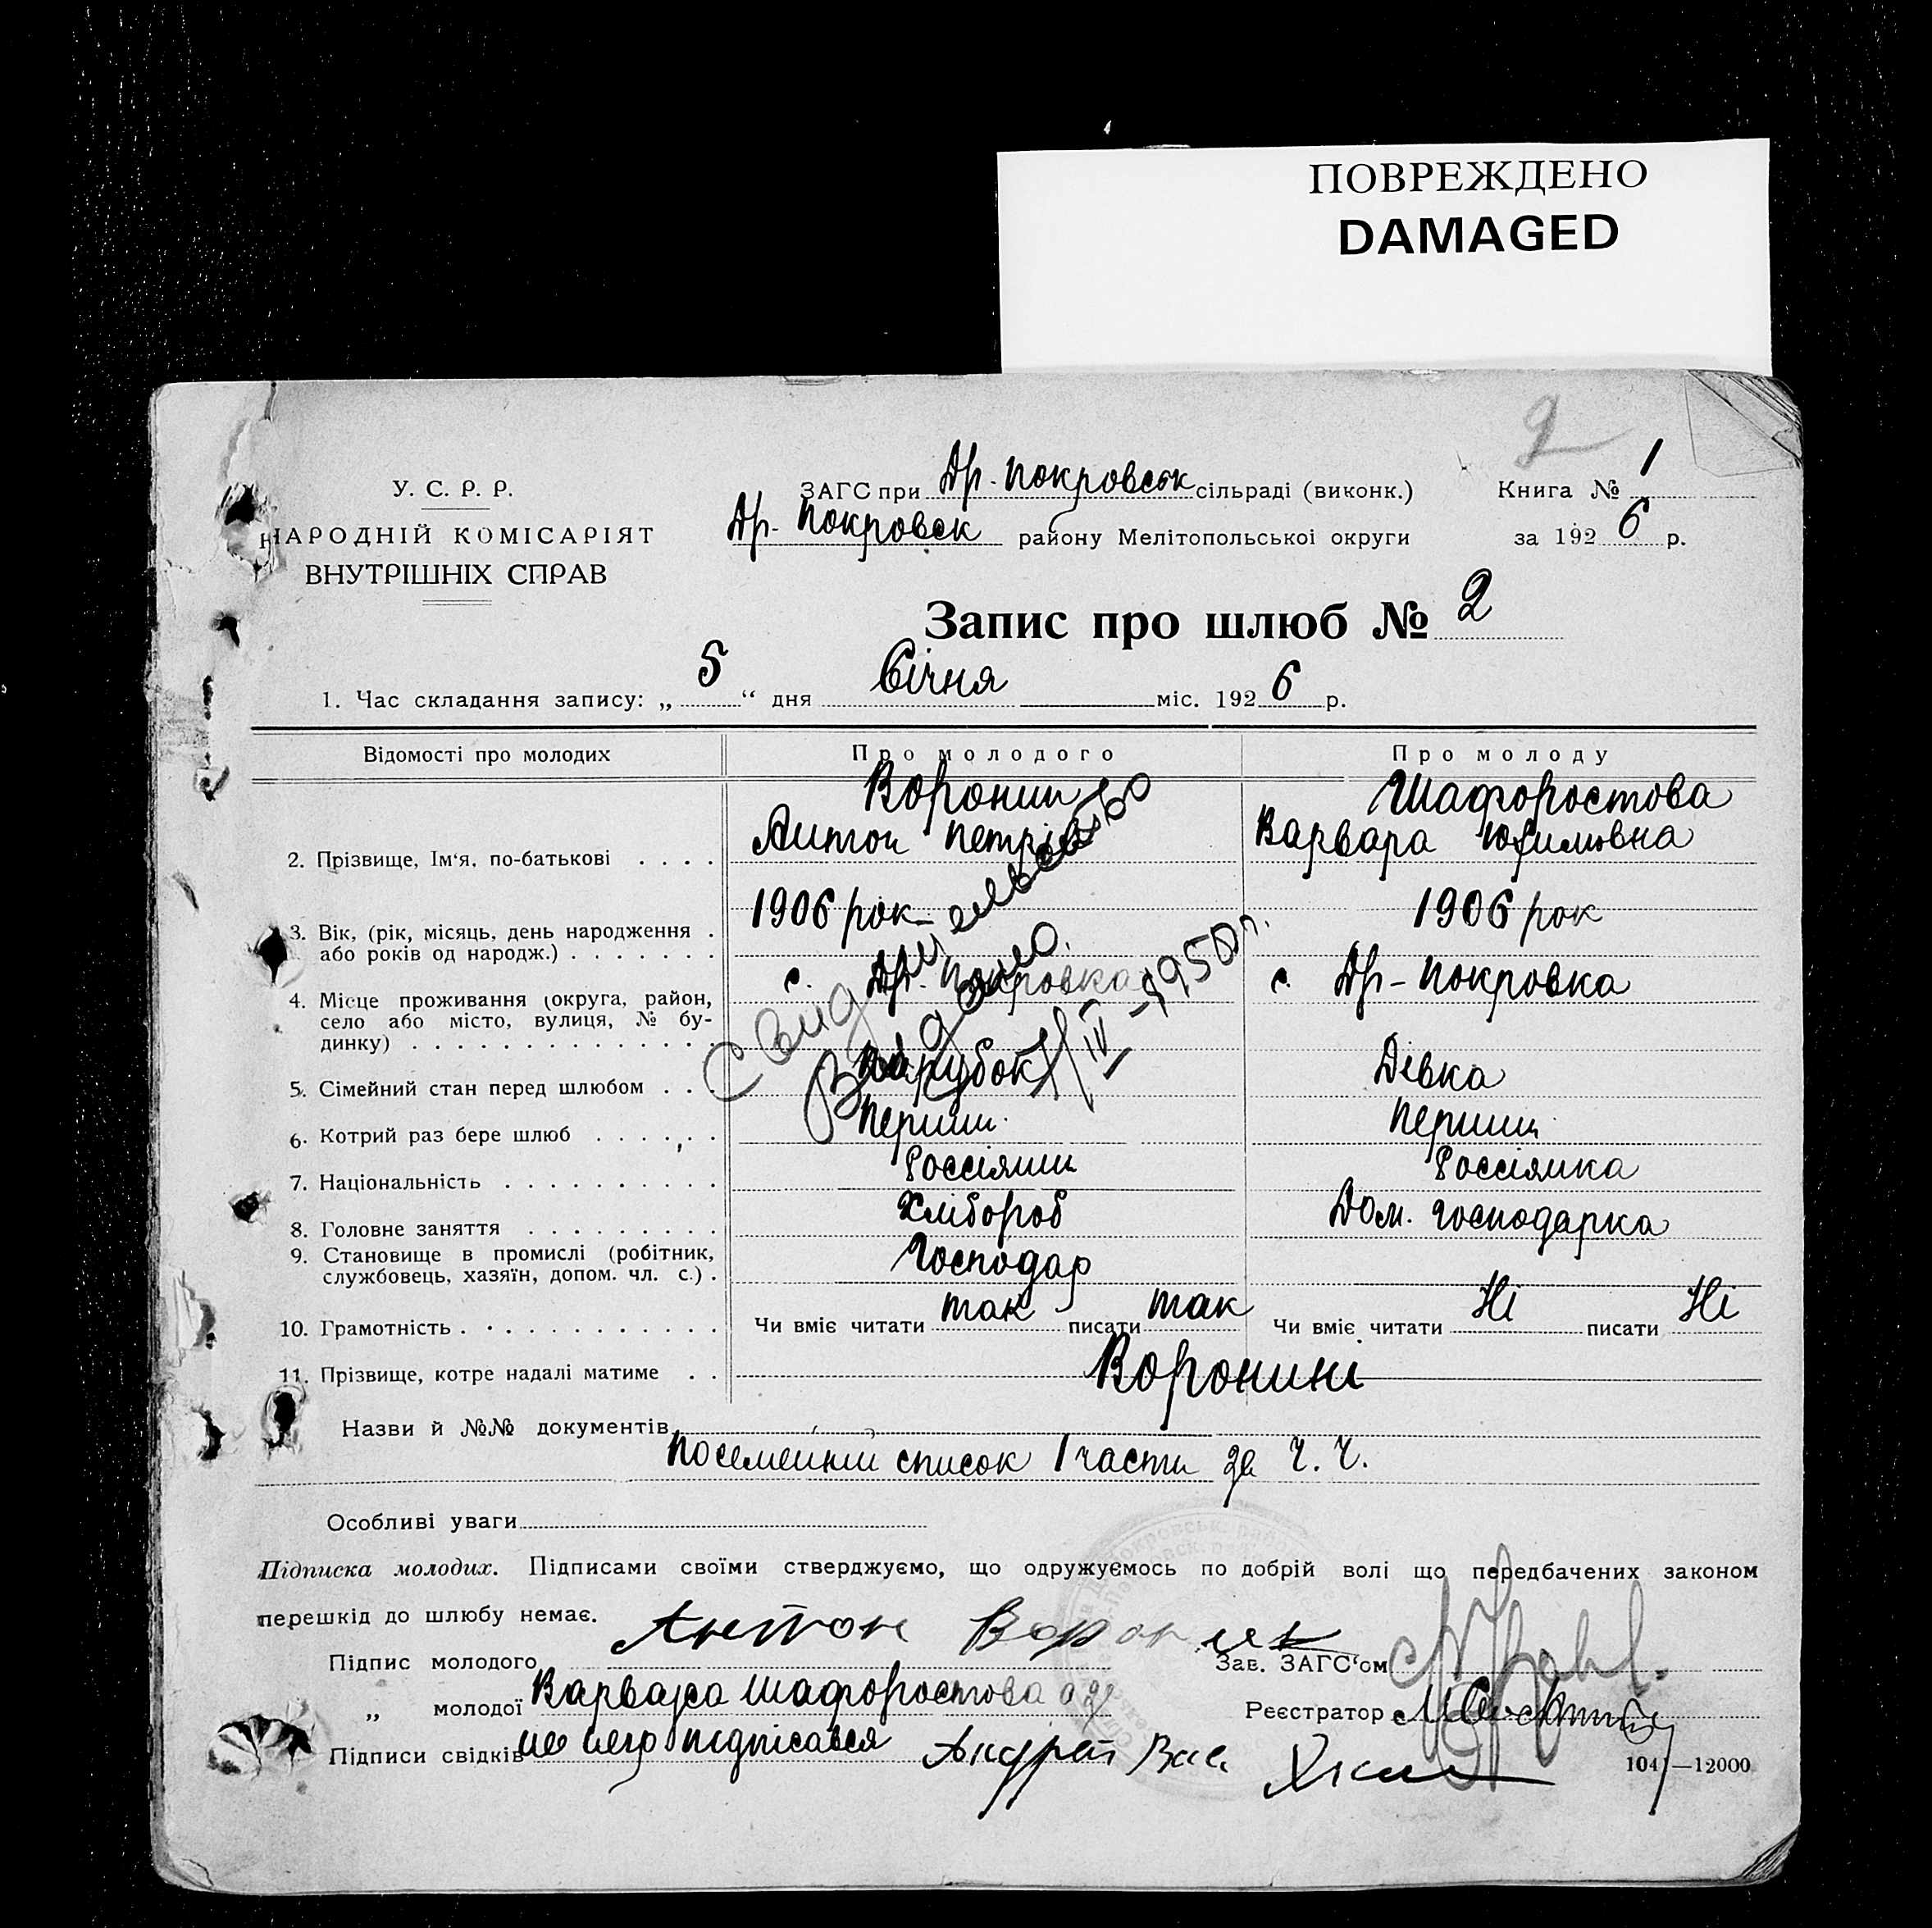 ПОВРЕЖДЕНО
DAMAGED
2
У. С. Р. Р.
НАРОДНІЙ КОМІСАРІЯТ
ВНУТРІШНІХ СПРАВ
ЗАГС при Др. Покровськ сільраді (виконк.)
Др- Покровск району Мелітопольської округи
Книга № 1
за 1926 р.
Запис про шлюб № 2
1. Час складання запису: „ 5 “ дня Січня міс. 1926 р.
Відомості про молодих Про молодого Про молоду
2. Прізвище, Ім‘я, по-батькові . . . . Воронин Антон Петрів Шафоростова Варвара Юхимовна
3. Вік, (рік, місяць, день народження . або років од народж.) . . . . . . . 1906 рок 1906 рок
4. Місце проживання (округа, район, село або місто, вулиця, № будинку) . . . . . . . . . . . . . . с. Др. Покровка с. Др-Покровка
5. Сімейний стан перед шлюбом . . . Парубок Дівка
6. Котрий раз бере шлюб . . . . . . Перший Перший
7. Національність . . . . . . . . . . Россіянин Россіянка
8. Головне заняття . . . . . . . . . Хлібороб Дом. господарка
9. Становище в промислі (робітник, службовець, хазяїн, допом. чл. с.) . Господар
10. Грамотність . . . . . . . . . . . . Чи вміє читати так писати так Чи вміє читати Ні писати Ні
11. Прізвище, котре надалі матиме . . Воронині
Свидетельство
Видано
IV-1950г.
Назви й №№ документів
Посемейний список 1 части за Ч. Ч.
Особливі уваги
Підписка молодих. Підписами своїми стверджуємо, що одружуємось по добрій волі що передбачених законом
перешкід до шлюбу немає.
Підпис молодого Антон Воронин Зав. ЗАГС‘ом
„ молодої Варвара Шафоростова а за Реєстратор
Підписи свідків не підпісався Андрей Вас
104 —12000